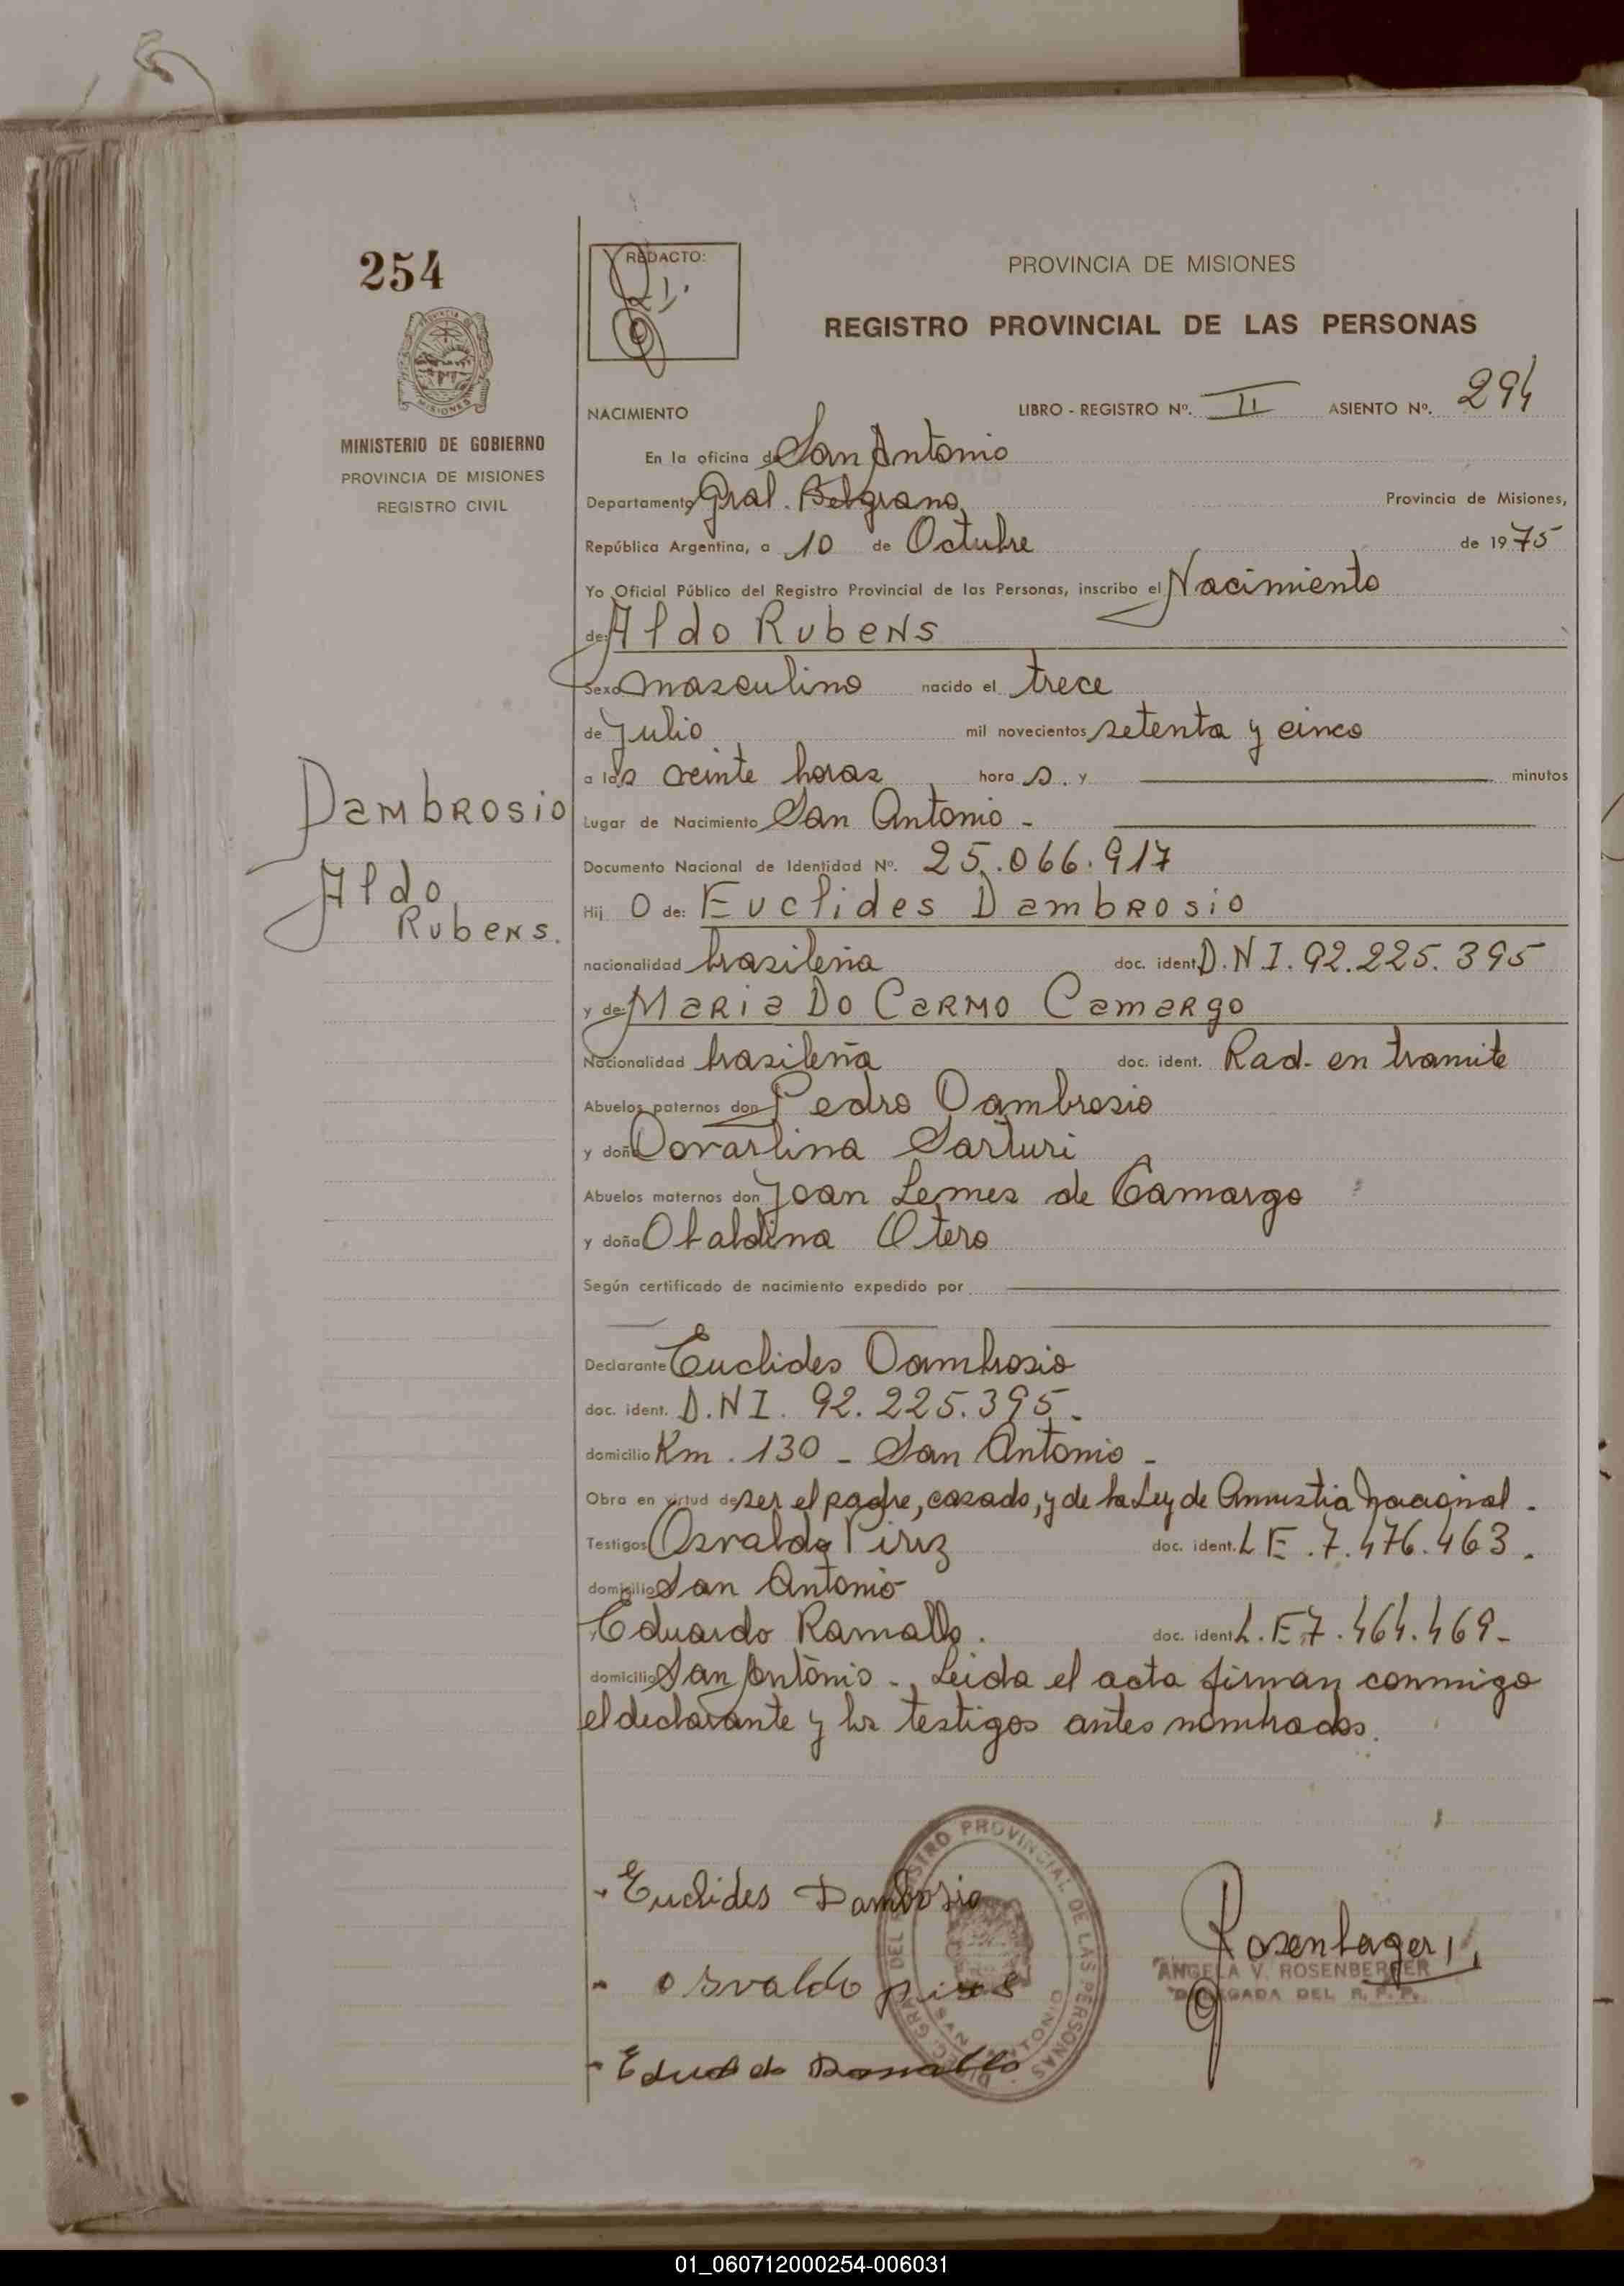 254
REDACTO:
PROVINCIA DE MISIONES
REGISTRO PROVINCIAL DE LAS PERSONAS
MINISTERIO DE GOBIERNO
PROVINCIA DE MISIONES
REGISTRO CIVIL
NACIMIENTO LIBRO - REGISTRO Nº. II ASIENTO Nº. 294
En la oficina de San Antonio
Departamento Gral. Belgrano Provincia de Misiones,
República Argentina, a 10 de Octubre de 1975
Yo Oficial Público del Registro Provincial de las Personas, inscribo el Nacimiento
de: Aldo Rubens
Sexo masculino nacido el trece
de Julio mil novecientos setenta y cinco
a las veinte horas hora s. y minutos
Dambrosio
Aldo
Rubens.
Lugar de Nacimiento San Antonio -
Documento Nacional de Identidad Nº. 25.066.917
Hij o de: Euclides Dambrosio
nacionalidad brasileña doc. ident. D.N.I. 92.225.395
y de: Maria Do Carmo Camargo
Nacionalidad brasileña doc. ident. Rad. en tramite
Abuelos paternos don Pedro Dambrosio
y doña Dovarlina Sarturi
Abuelos maternos don Joan Lemes de Camargo
y doña Obaldina Otero
Según certificado de nacimiento expedido por
Declarante Euclides Dambrosio
doc. ident. D.N.I. 92.225.395.
domicilio Km. 130 - San Antonio -
Obra en virtud de ser el padre, casado, y de la Ley de Amnistia Nacional.
Testigos Osvaldo Piriz doc. ident. L E. 7.476.463.
domicilio San Antonio
Eduardo Ramallo. doc. ident. L.E 7.464.469-
domicilio San Antonio - Leida el acta firman conmigo
el declarante y los testigos antes nombrados.
- Euclides Dambrosio
- Osvaldo
- Ramallo
REGISTRO PROVINCIAL DE LAS PERSONAS
SAN ANTONIO
ANGELA V. ROSENBERGER
DELEGADA DEL R. P. P.
01_060712000254-006031